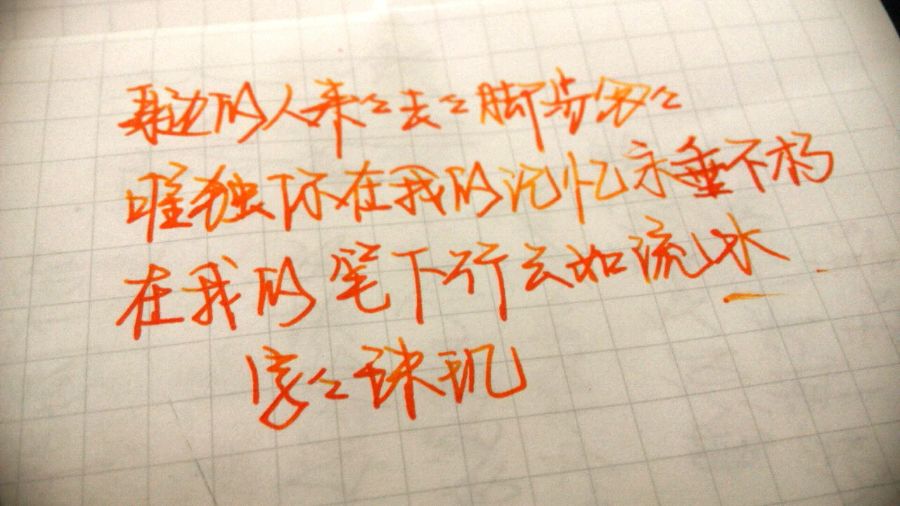 身边的人来々去々脚步匆々
唯独你在我的记忆永垂不朽
在我的笔下行云如流水
字々珠玑